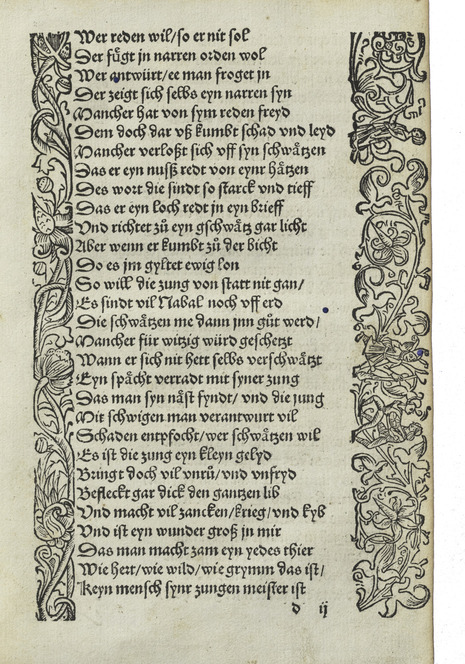 Wer reden wil/so er nit sol
Der fu̇gt jn narren orden wol
Wer antwürt/ee man froget jn
Der zeigt sich selbs eyn narren syn
Mancher hat von sym reden freyd
Dem doch dar vß kumbt schad vnd leyd
Mancher verloßt sich vff syn schwaͤtzen
Das er eyn nusß redt von eynr haͤtzen
Des wort die sindt so starck vnd tieff
Das er eyn loch redt jn eyn brieff
Vnd richtet zů eyn gschwaͤtz gar licht
Aber wenn er kumbt zů der bicht
So es jm gyltet ewig lon
So will die zung von statt nit gan/
Es sindt vil Nabal noch vff erd
Die schwaͤtzen me dann jnn gůt werd/
Mancher für witzig würd geschetzt
Wann er sich nit hett selbs verschwaͤtzt
Eyn spaͤcht verradt mit syner zung
Das man syn naͤst fyndt/ vnd die jung
Mit schwigen man verantwurt vil
Schaden entpfocht/wer schwaͤtzen wil
Es ist die zung eyn kleyn gelyd
Bringt doch vil vnrů/vnd vnfryd
Befleckt gar dick den gantzen lib
Vnd macht vil zancken/krieg/vnd kyb
Vnd ist eyn wunder groß jn mir
Das man macht zam eyn yedes thier
Wie hert/wie wild/wie grymm das ist/
Keyn mensch synr zungen meister ist
d ij